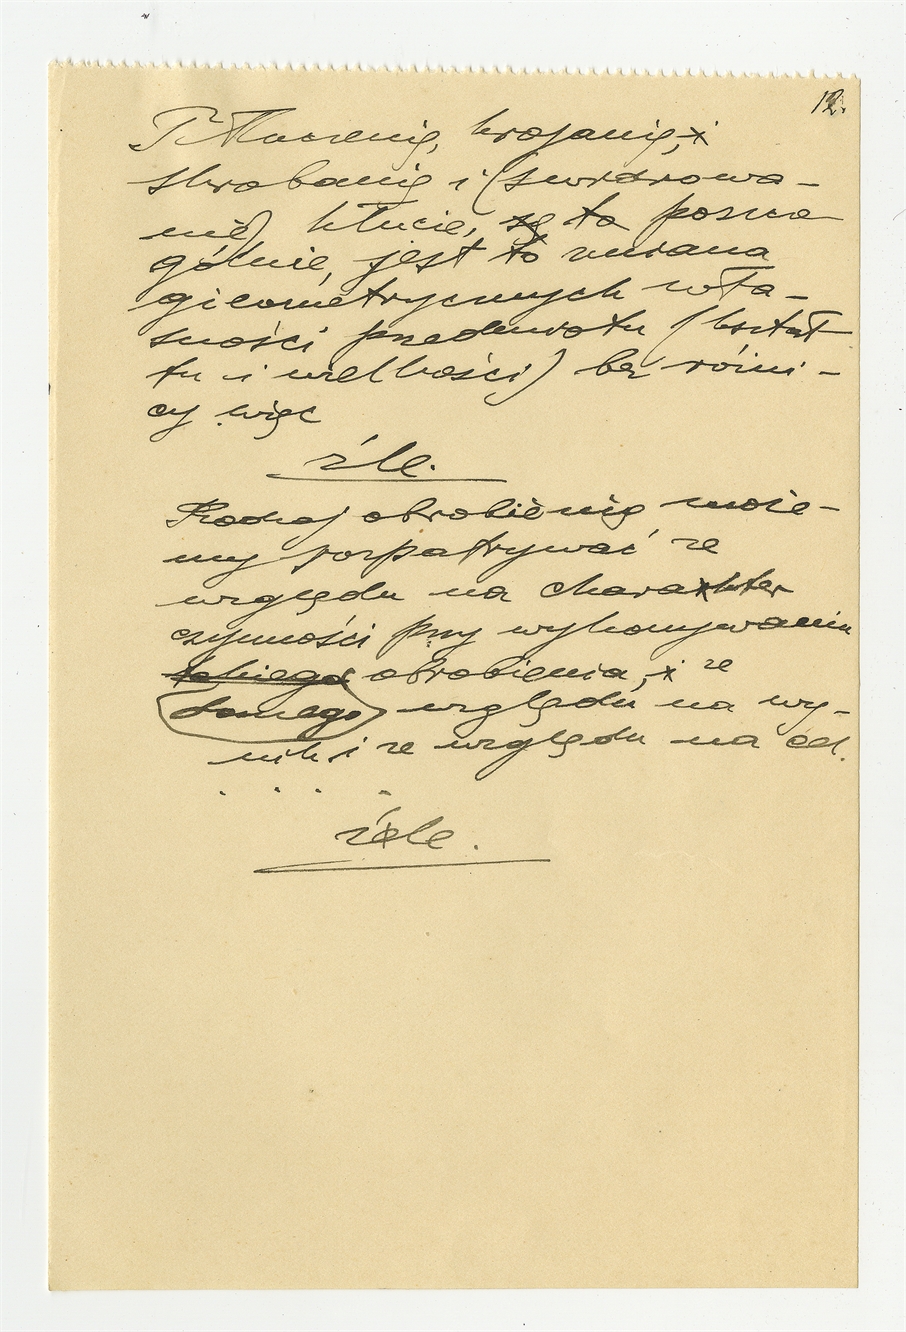 12.
Tłuczenie, krojanie, i
skrobanie i (sw
nie) kłucie, są to poszcze
gólnie, jest to zmiana
gieometrycznych wła-
sności przedmiotu (kształ
tu i wielkości) bez różni-
cy więc
źle.
Rodzaj obrobienia może-
my rozpatrywać ze
względu na charakter
czynności przy wykonywaniu
takiego obrobienia, i ze
danego względu na wy-
nik i ze względu na cel.
. . . .
źle.